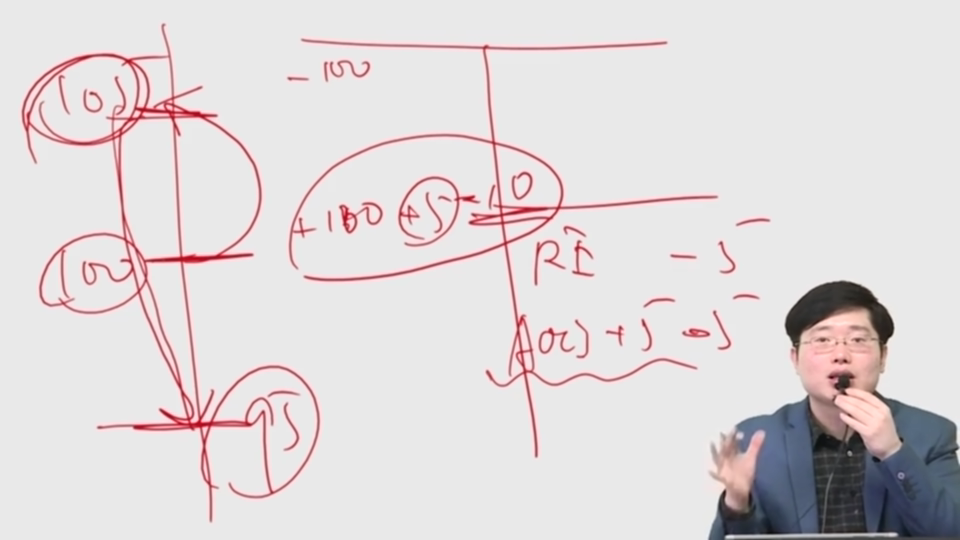 105
100
95
- 100
+100 +5 -10
RE - 5
AOCJ + 5 - 5